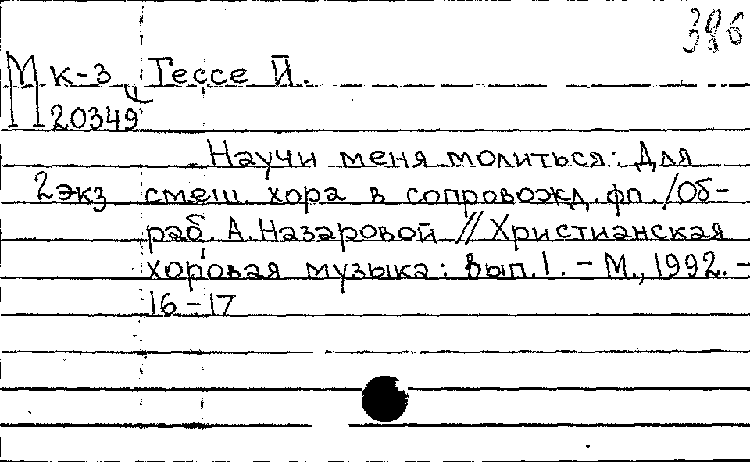 386
М к-3 Гессе Й.
20349
Научи меня молиться: Для
2экз смеш. хора в сопровожд. фп. /Об-
раб. А. Назаровой // Христианская
хоровая музыка: Вып. 1. - М., 1992. -
16-17